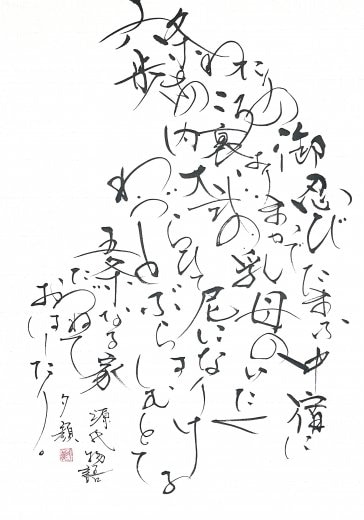 六条わたりの御忍び
歩きのころ
内裏よりまかでたまふ中宿に
大弐の乳母のいたく
わづらひて尼になりける
とぶらはむとて
五条なる家
たづねて
おはしたり。
源氏物語
夕顔